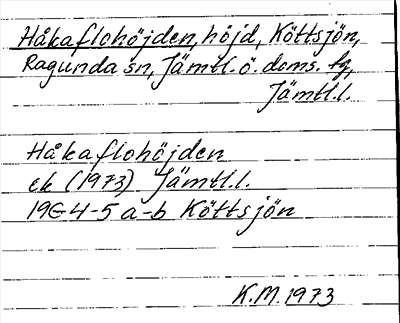 Håkaflohöjden, höjd, Köttsjön,
Ragunda sn, Jämtl. ö. doms. tg,
Jämtl.l.
Håkaflohöjden
ek (1973) Jämtl.l.
19G 4-5 a-b Köttsjön
K.M. 1973